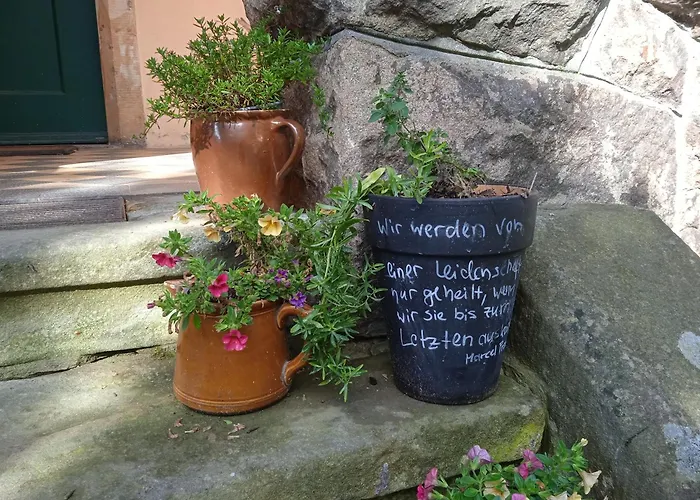 Wir werden von
einer Leidenscha
nur geheilt, wenn
wir sie bis zum
Letzten aus
Marcel